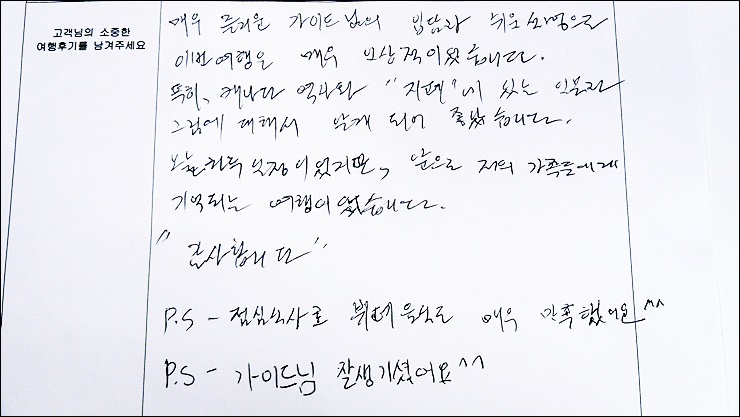 고객님의 소중한
여행후기를 남겨주세요
매우 즐거운 가이드님의 입담과 쉬운 설명으로
이번여행은 매우 인상적이었습니다.
특히, 캐나다 역사와 "지폐"에 있는 인물과
그림에 대해서 알게 되어 좋았습니다.
오늘 하루 일정이었지만, 앞으로 저의 가족들에게
기억되는 여행이 였습니다.
"감사합니다"
P.S - 점심식사로 뷔페음식도 매우 만족했어요^^
P.S - 가이드님 잘생기셨어요^^